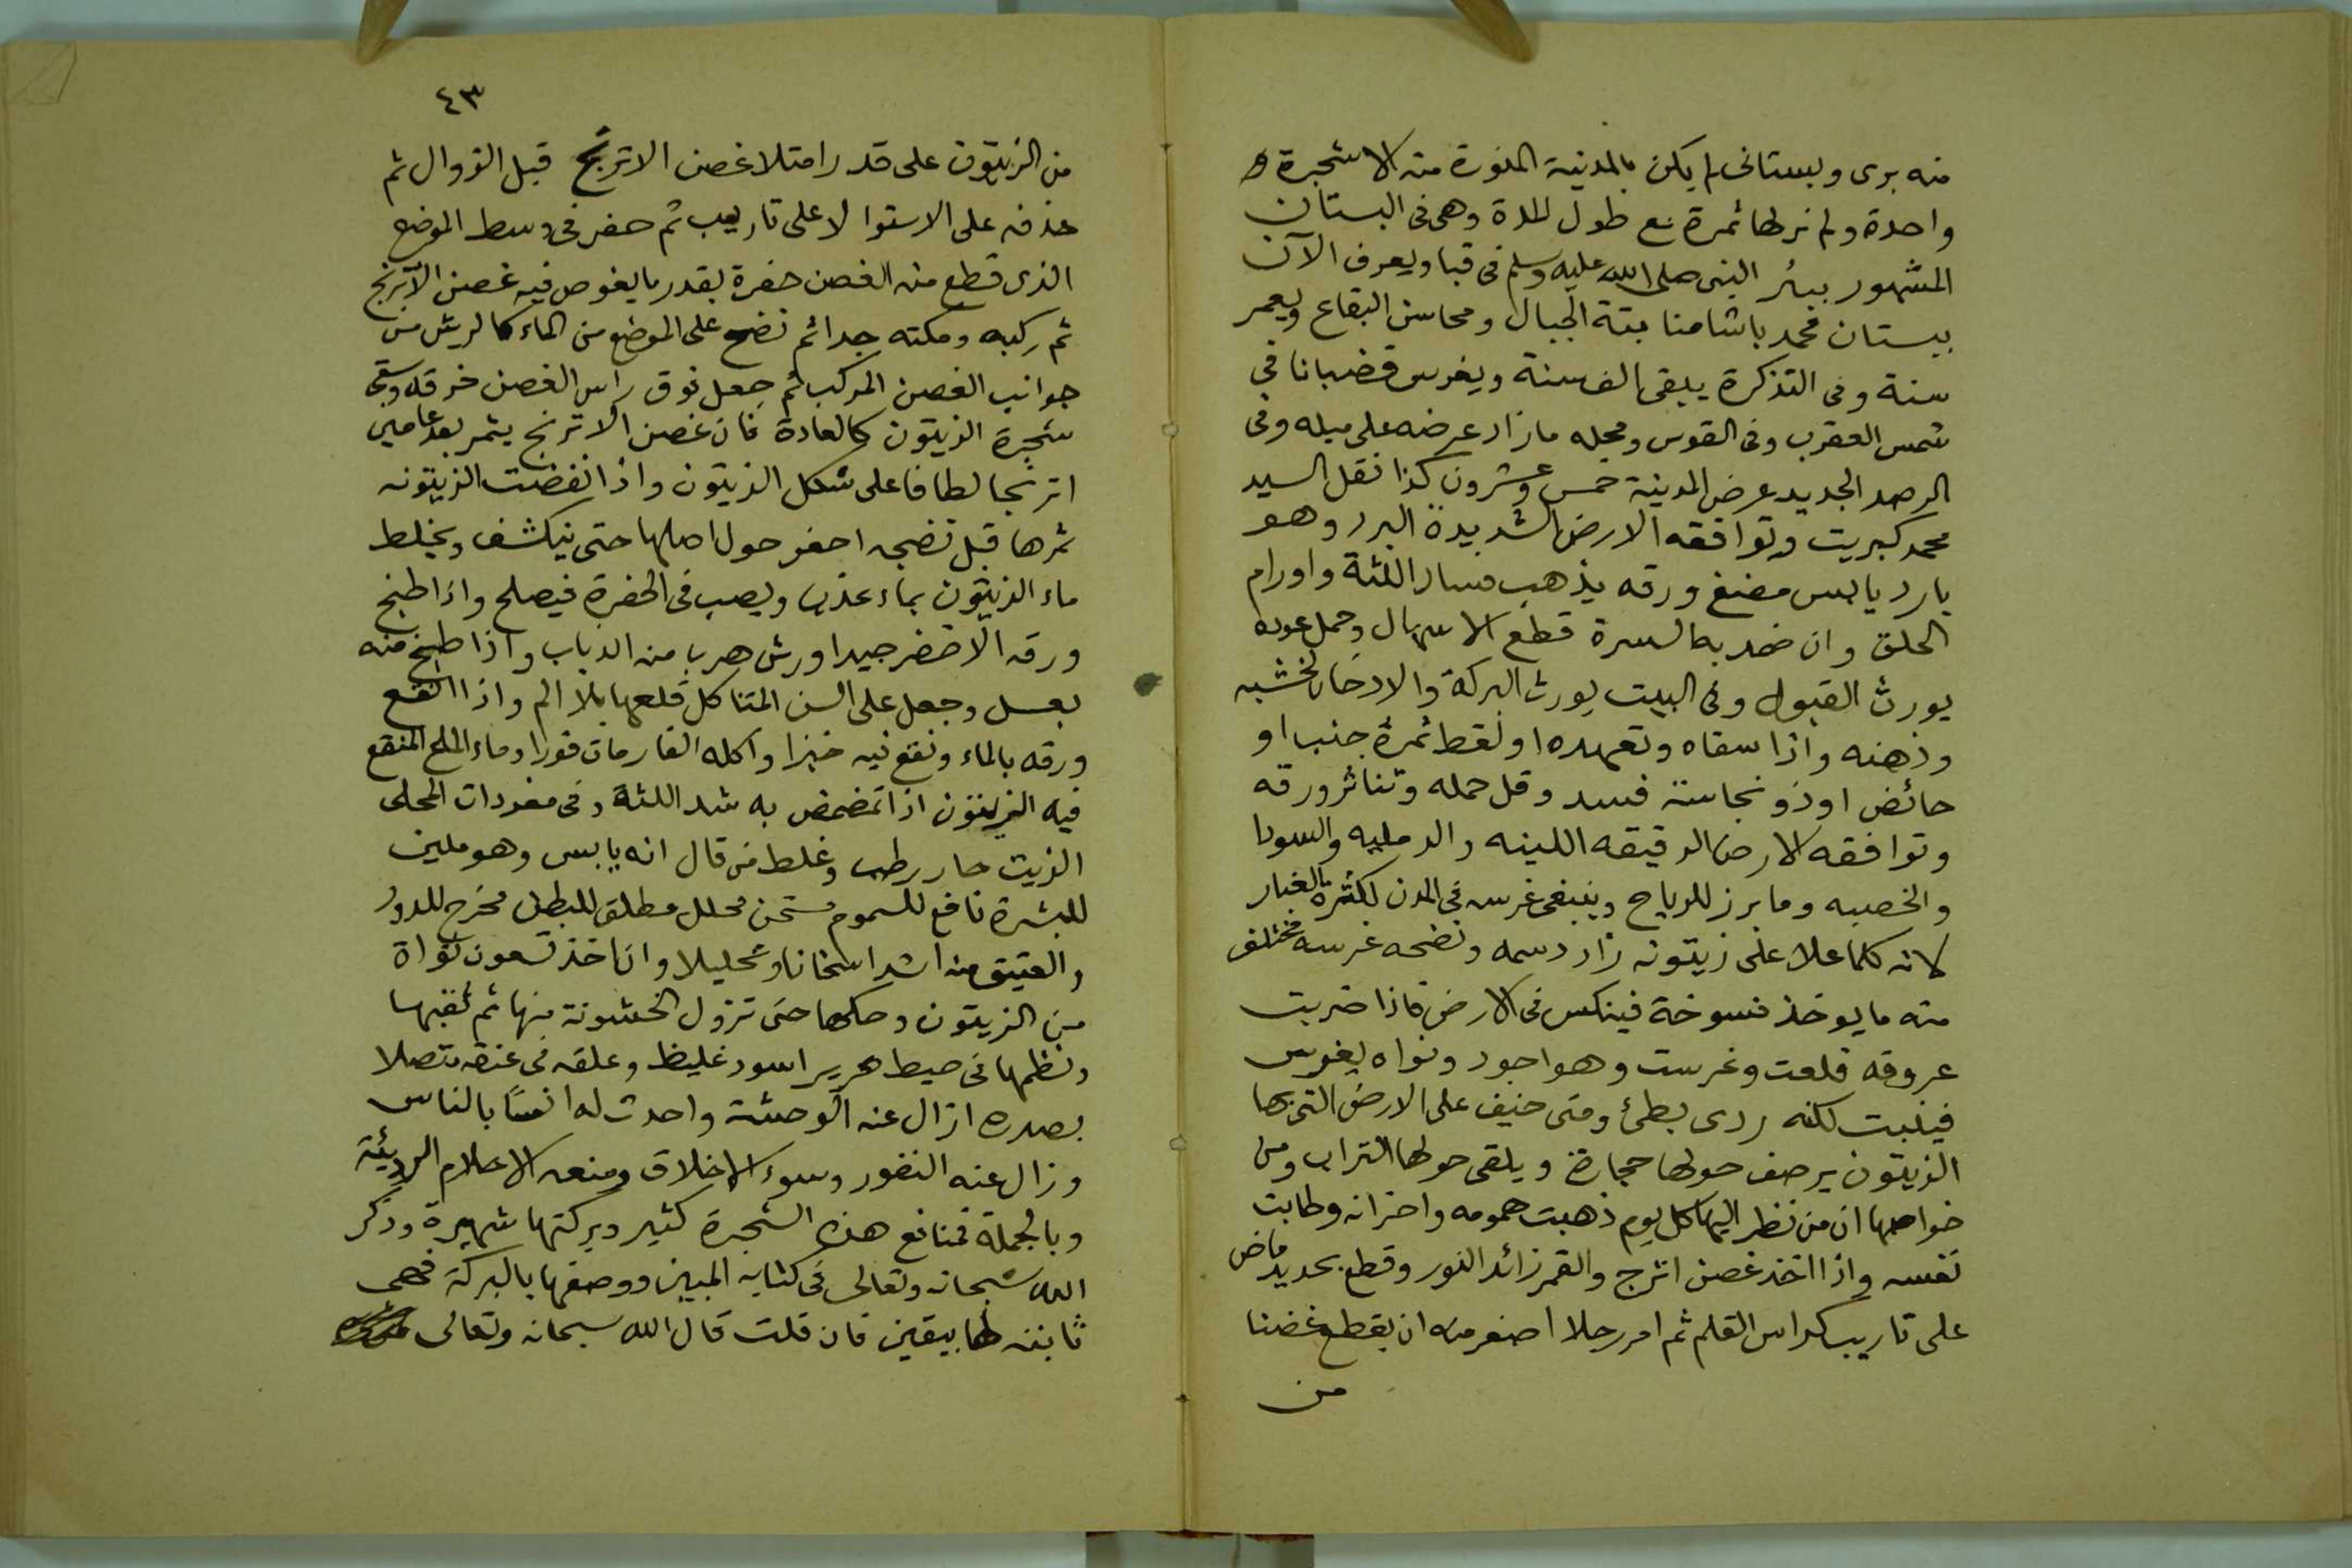 منه برى وبستانى لم يكن بالمدينة المنورة منه الا شجرة
واحدة ولم نر لها ثمرة مع طول المدة وهى فى البستان
المشهور ببئر النبى صلى الله عليه وسلم فى قبا ويعرف الآن
ببستان محمد باشا منابتة الجبال ومحاسن البقاع ويعمر
سنة وفى التذكرة يبقى الف سنة ويغرس قضبانا فى
شمس العقرب وفى القوس ومحله مازاد عرضه على ميله وفى
الرصد الجديد عرض المدينة خمس وعشرون كذا نقل السيد
محمد كبريت وتوافقه الارض الشديدة البرد وهو
بارد يابس مضغ ورقه يذهب فساد اللثة واورام
الحلق وان ضمد به السرة قطع الاسهال وحمل عوده
يورث القبول وفى البيت يورث البركة والادخان بخشبه
ودهنه واذا سقاه وتعهده او لقط ثمرة جنب او
حائض او ذو نجاسة فسد وقل حمله وتناثر ورقه
وتوافقه الارض الدقيقه اللينه والرمليه والسودا
والخصبه وما برز للرياح وينبغى غرسه فى المدن لكثرة الغبار
لانه كلما علا على زيتونه زاد دسمه ونضجه غرسه مختلف
منه ما يوخذ فسوخة فينكس فى الارض فاذا ضربت
عروقه قلعت وغرست وهو اجود ونواه يغرس
فينبت لكنه ردى بطئ ومتى خيف على الارض التى بها
الزيتون يرصف حولها حجارة ويلقى حولها التراب ومن
خواصها ان من نظر اليها كل يوم ذهبت همومه واحزانه وطابت
نفسه واذا اتخذ غصن اترج والقمر زائد النور وقطع بحديد ماض
على تاريب كراس القلم ثم امر رجلا اصغر منه ان يقطع غصنا
من
٤٣
من الزيتون على قدر امتلا غصن الاترنج قبل الزوال ثم
حذفه على الاستوا لا على تاريب ثم حفر فى وسط الموضع
الذى قطع منه الغصن حفرة بقدر ما يغوص فيه غصن الاترنج
ثم ركبه ومكنه جدا ثم نضح على الموضع من الماء كالرش من
جوانب الغصن المركب ثم جعل فوق راس الغصن خرقه وسقى
شجرة الزيتون كالعادة فان غصن الاترنج يثمر بعد عامين
اترنجا لطافا على شكل الزيتون واذا نفضت الزيتونه
ثمرها قبل نضجه احفر حول اصلها حتى ينكشف ويخلط
ماء الزيتون بماء عذب ويصب فى الحفرة فيصلح واذا طبخ
ورقه الاخضر جيدا ورش هرب منه الذباب واذا طبخ منه
بعسل وجعل على السن المتاكل قلعها بلا الم واذا انقع
ورقه بالماء ونقع فيه خبزا واكله الفار مات فورا وماء الملح المنقع
فيه الزيتون اذا تمضمض به شد اللثة وفى مفردات المحلى
الزيت حار رطب وغلط من قال انه يابس وهو ملين
للبشرة نافع للسموم مسخن محلل مطلق للبطن مخرج للدود
والعتيق منه اشد اسخانا وتحليلا وان اخذ تسعون نواة
من الزيتون وحكها حتى تزول الخشونة منها ثم ثقبها
ونظمها فى خيط حرير اسود غليظ وعلقه فى عنقه متصلا
بصدره ازال عنه الوحشة واحدث له انسا بالناس
وزال عنه النفور وسوء الاخلاق ومنعه الاحلام الرديئة
وبالجملة فمنافع هذه الشجرة كثير وبركتها شهيرة وذكر
الله سبحانه وتعالى فى كتابه المبين ووصفها بالبركة فهى
ثابته لها بيقين فان قلت قال الله سبحانه وتعالى